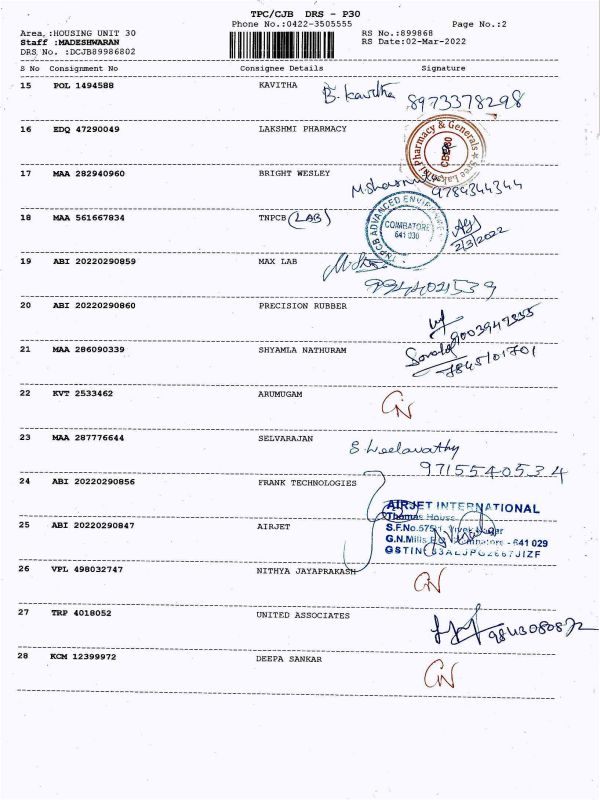 TPC/CJB DRS - P30
Phone No.:0422-3505555 Page No.:2
Area :HOUSING UNIT 30 RS No.:899868
Staff :MADESHWARAN RS Date:02-Mar-2022
DRS No. :DCJB89986802
S No Consignment No Consignee Details Signature
15 POL 1494588 KAVITHA B. Kavitha 8973378298
16 EDQ 47290049 LAKSHMI PHARMACY
Sree Lakshmi Pharmacy & Generals
17 MAA 282940960 BRIGHT WESLEY
9789344344
18 MAA 561667834 TNPCB (LAB)
TNPCB ADVANCED
COIMBATORE
641 030
2/3/2022
19 ABI 20220290859 MAX LAB
9944021539
20 ABI 20220290860 PRECISION RUBBER
21 MAA 286090339 SHYAMLA NATHURAM
7845101701
22 KVT 2533462 ARUMUGAM
CN
23 MAA 287776644 SELVARAJAN
S. Leelavathy
9715540534
24 ABI 20220290856 FRANK TECHNOLOGIES
AIRJET INTERNATIONAL
Thomas House
25 ABI 20220290847 AIRJET
S.F.No.575/1, Vivek Nagar
G.N.Mills - 641 029
26 VPL 498032747 NITHYA JAYAPRAKASH
CN
27 TRP 4018052 UNITED ASSOCIATES
9843080872
28 KCM 12399972 DEEPA SANKAR
CN